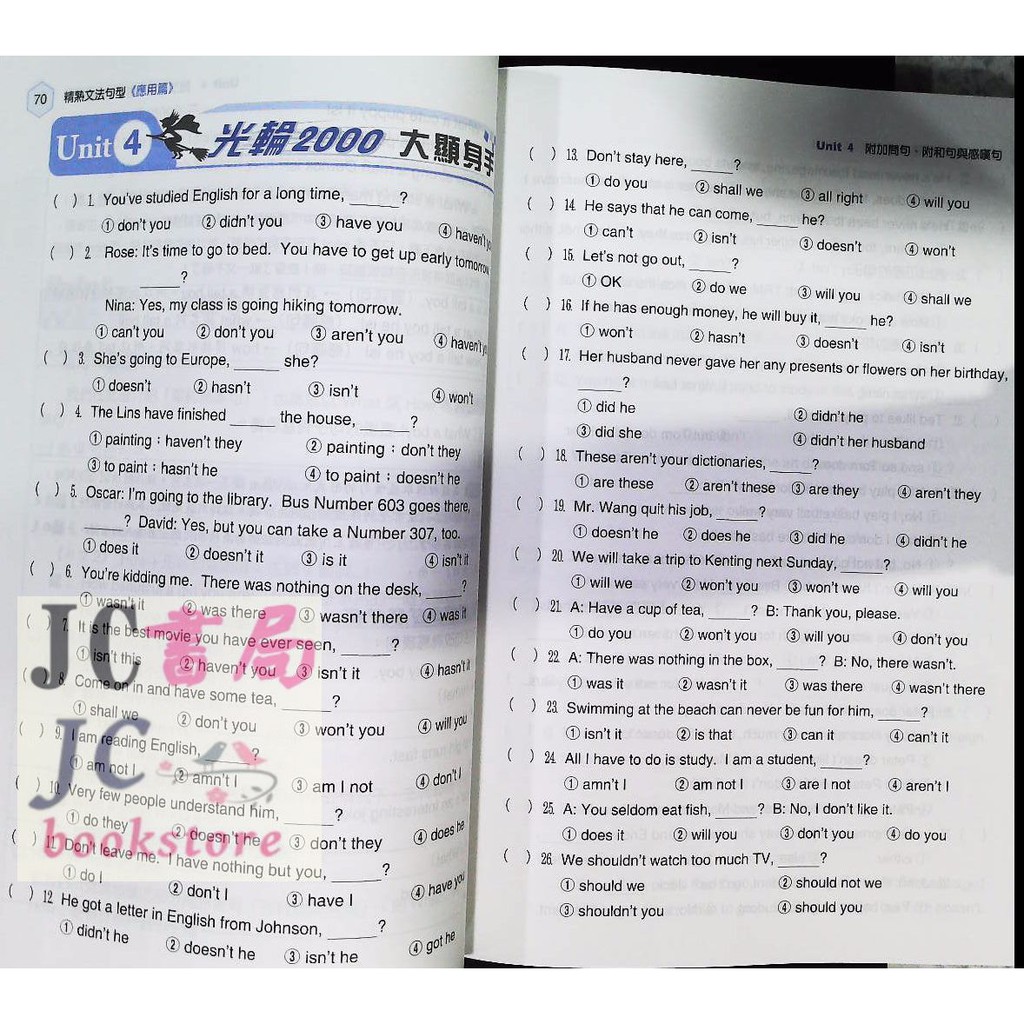 70 精熟文法句型《應用篇》
Unit 4 光輪2000 大顯身手
( ) 1. You've studied English for a long time, ______ ?
① don't you ② didn't you ③ have you ④ haven't you
( ) 2. Rose: It's time to go to bed. You have to get up early tomorrow
______?
Nina: Yes, my class is going hiking tomorrow.
① can't you ② don't you ③ aren't you ④ haven't
( ) 3. She's going to Europe, ______ she?
① doesn't ② hasn't ③ isn't ④ won't
( ) 4. The Lins have finished ______ the house, ______ ?
① painting：haven't they ② painting：don't they
③ to paint：hasn't he ④ to paint：doesn't he
( ) 5. Oscar: I'm going to the library. Bus Number 603 goes there,
______? David: Yes, but you can take a Number 307, too.
① does it ② doesn't it ③ is it ④ isn't it
( ) 6. You're kidding me. There was nothing on the desk, ______?
① wasn't it ② was there ③ wasn't there ④ was it
( ) 7. It is the best movie you have ever seen, ______ ?
① isn't this ② haven't you ③ isn't it ④ hasn't it
( ) 8. Come on in and have some tea, ______ ?
① shall we ② don't you ③ won't you ④ will you
( ) 9. I am reading English, ______ ?
① am not I ② amn't I ③ am I not ④ don't I
( ) 10. Very few people understand him, ______ ?
① do they ② doesn't he ③ don't they ④ does he
( ) 11. Don't leave me. I have nothing but you, ______ ?
① do I ② don't I ③ have I ④ have you
( ) 12. He got a letter in English from Johnson, ______ ?
① didn't he ② doesn't he ③ isn't he ④ got he
JC書局
JC
bookstore
Unit 4 附加問句、附和句與感嘆句
( ) 13. Don't stay here, ______ ?
① do you ② shall we ③ all right ④ will you
( ) 14. He says that he can come, ______ he?
① can't ② isn't ③ doesn't ④ won't
( ) 15. Let's not go out, ______ ?
① OK ② do we ③ will you ④ shall we
( ) 16. If he has enough money, he will buy it, ______ he?
① won't ② hasn't ③ doesn't ④ isn't
( ) 17. Her husband never gave her any presents or flowers on her birthday,
______ ?
① did he ② didn't he
③ did she ④ didn't her husband
( ) 18. These aren't your dictionaries, ______ ?
① are these ② aren't these ③ are they ④ aren't they
( ) 19. Mr. Wang quit his job, ______ ?
① doesn't he ② does he ③ did he ④ didn't he
( ) 20. We will take a trip to Kenting next Sunday, ______ ?
① will we ② won't you ③ won't we ④ will you
( ) 21. A: Have a cup of tea, ______ ? B: Thank you, please.
① do you ② won't you ③ will you ④ don't you
( ) 22. A: There was nothing in the box, ______ ? B: No, there wasn't.
① was it ② wasn't it ③ was there ④ wasn't there
( ) 23. Swimming at the beach can never be fun for him, ______ ?
① isn't it ② is that ③ can it ④ can't it
( ) 24. All I have to do is study. I am a student, ______ ?
① amn't I ② am not I ③ are I not ④ aren't I
( ) 25. A: You seldom eat fish, ______ ? B: No, I don't like it.
① does it ② will you ③ don't you ④ do you
( ) 26. We shouldn't watch too much TV, ______ ?
① should we ② should not we
③ shouldn't you ④ should you